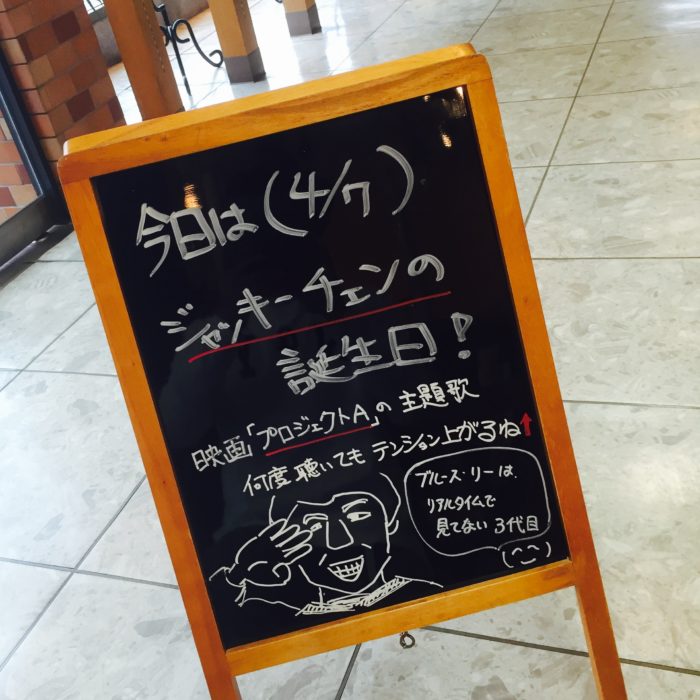 今日は(4/7)
ジャッキーチェンの
誕生日!
映画「プロジェクトA」の主題歌
何度聴いてもテンション上がるね↑
ブルース・リーは、
リアルタイムで
見てない3代目
(^-^)